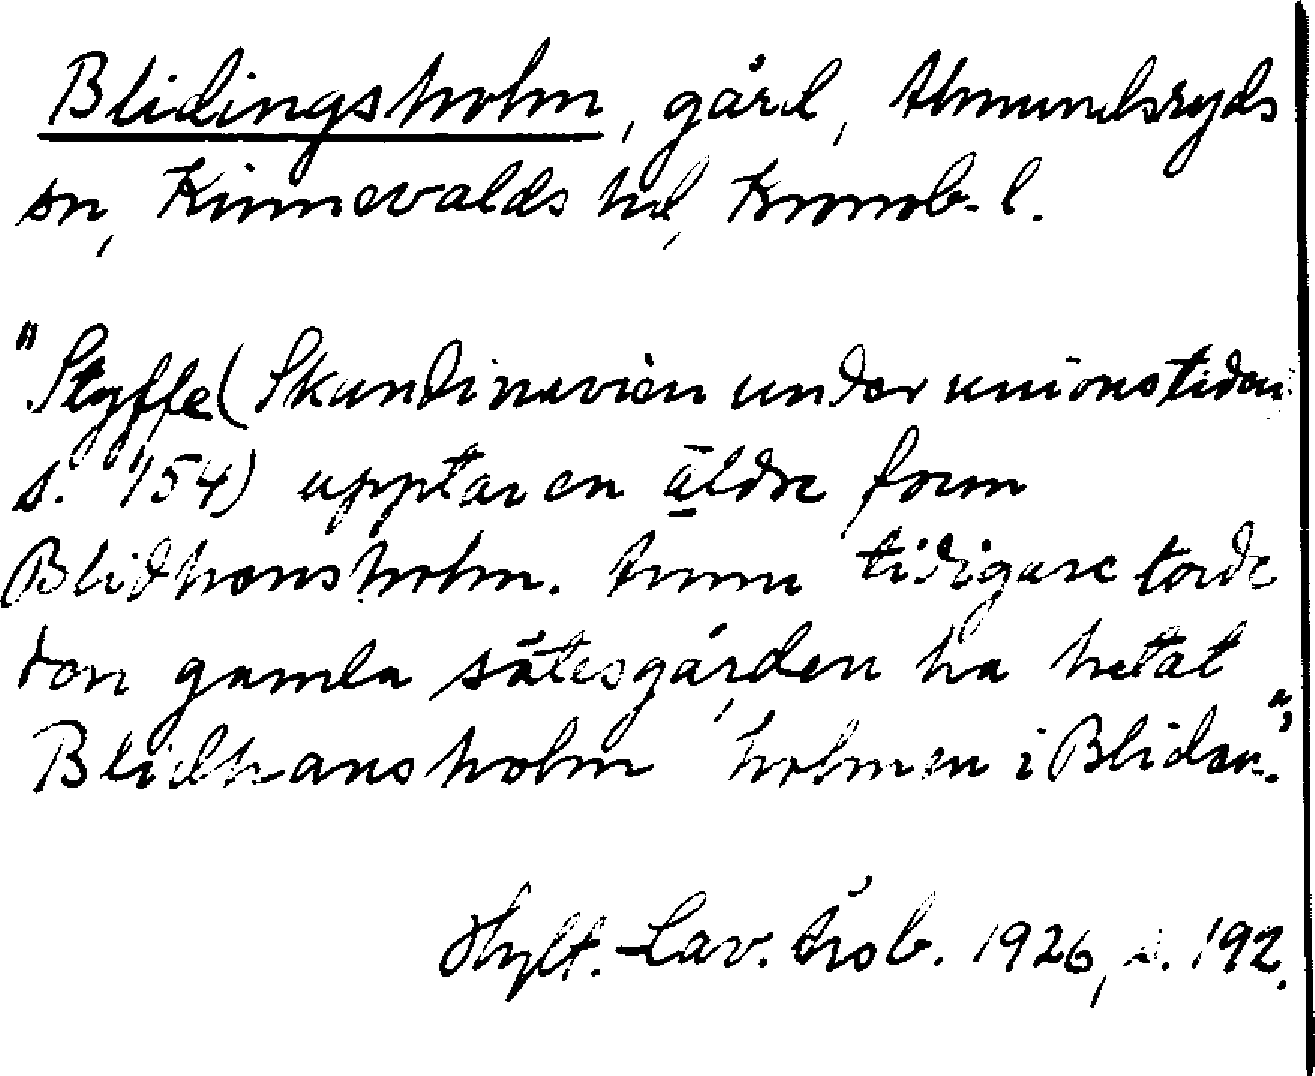 Blidingsholm, gård, Almundsryds
sn, Kinnevalds hd, Kronob. l.
"Styffe (Skandinavien under unionstiden
s. 154) upptar en äldre form
Blidhænsholm. Ännu tidigare torde
den gamla sätesgården ha hetat
Blidhansholm "holmen i Blidan".
Hylt.-Cav. Årsb. 1926, s. 192.